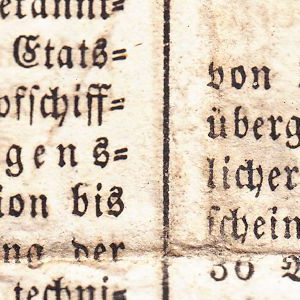 Etats=
ofſchiff=
gens=
ion bis
ng der
techni=
von
überg
licher
ſchein
30